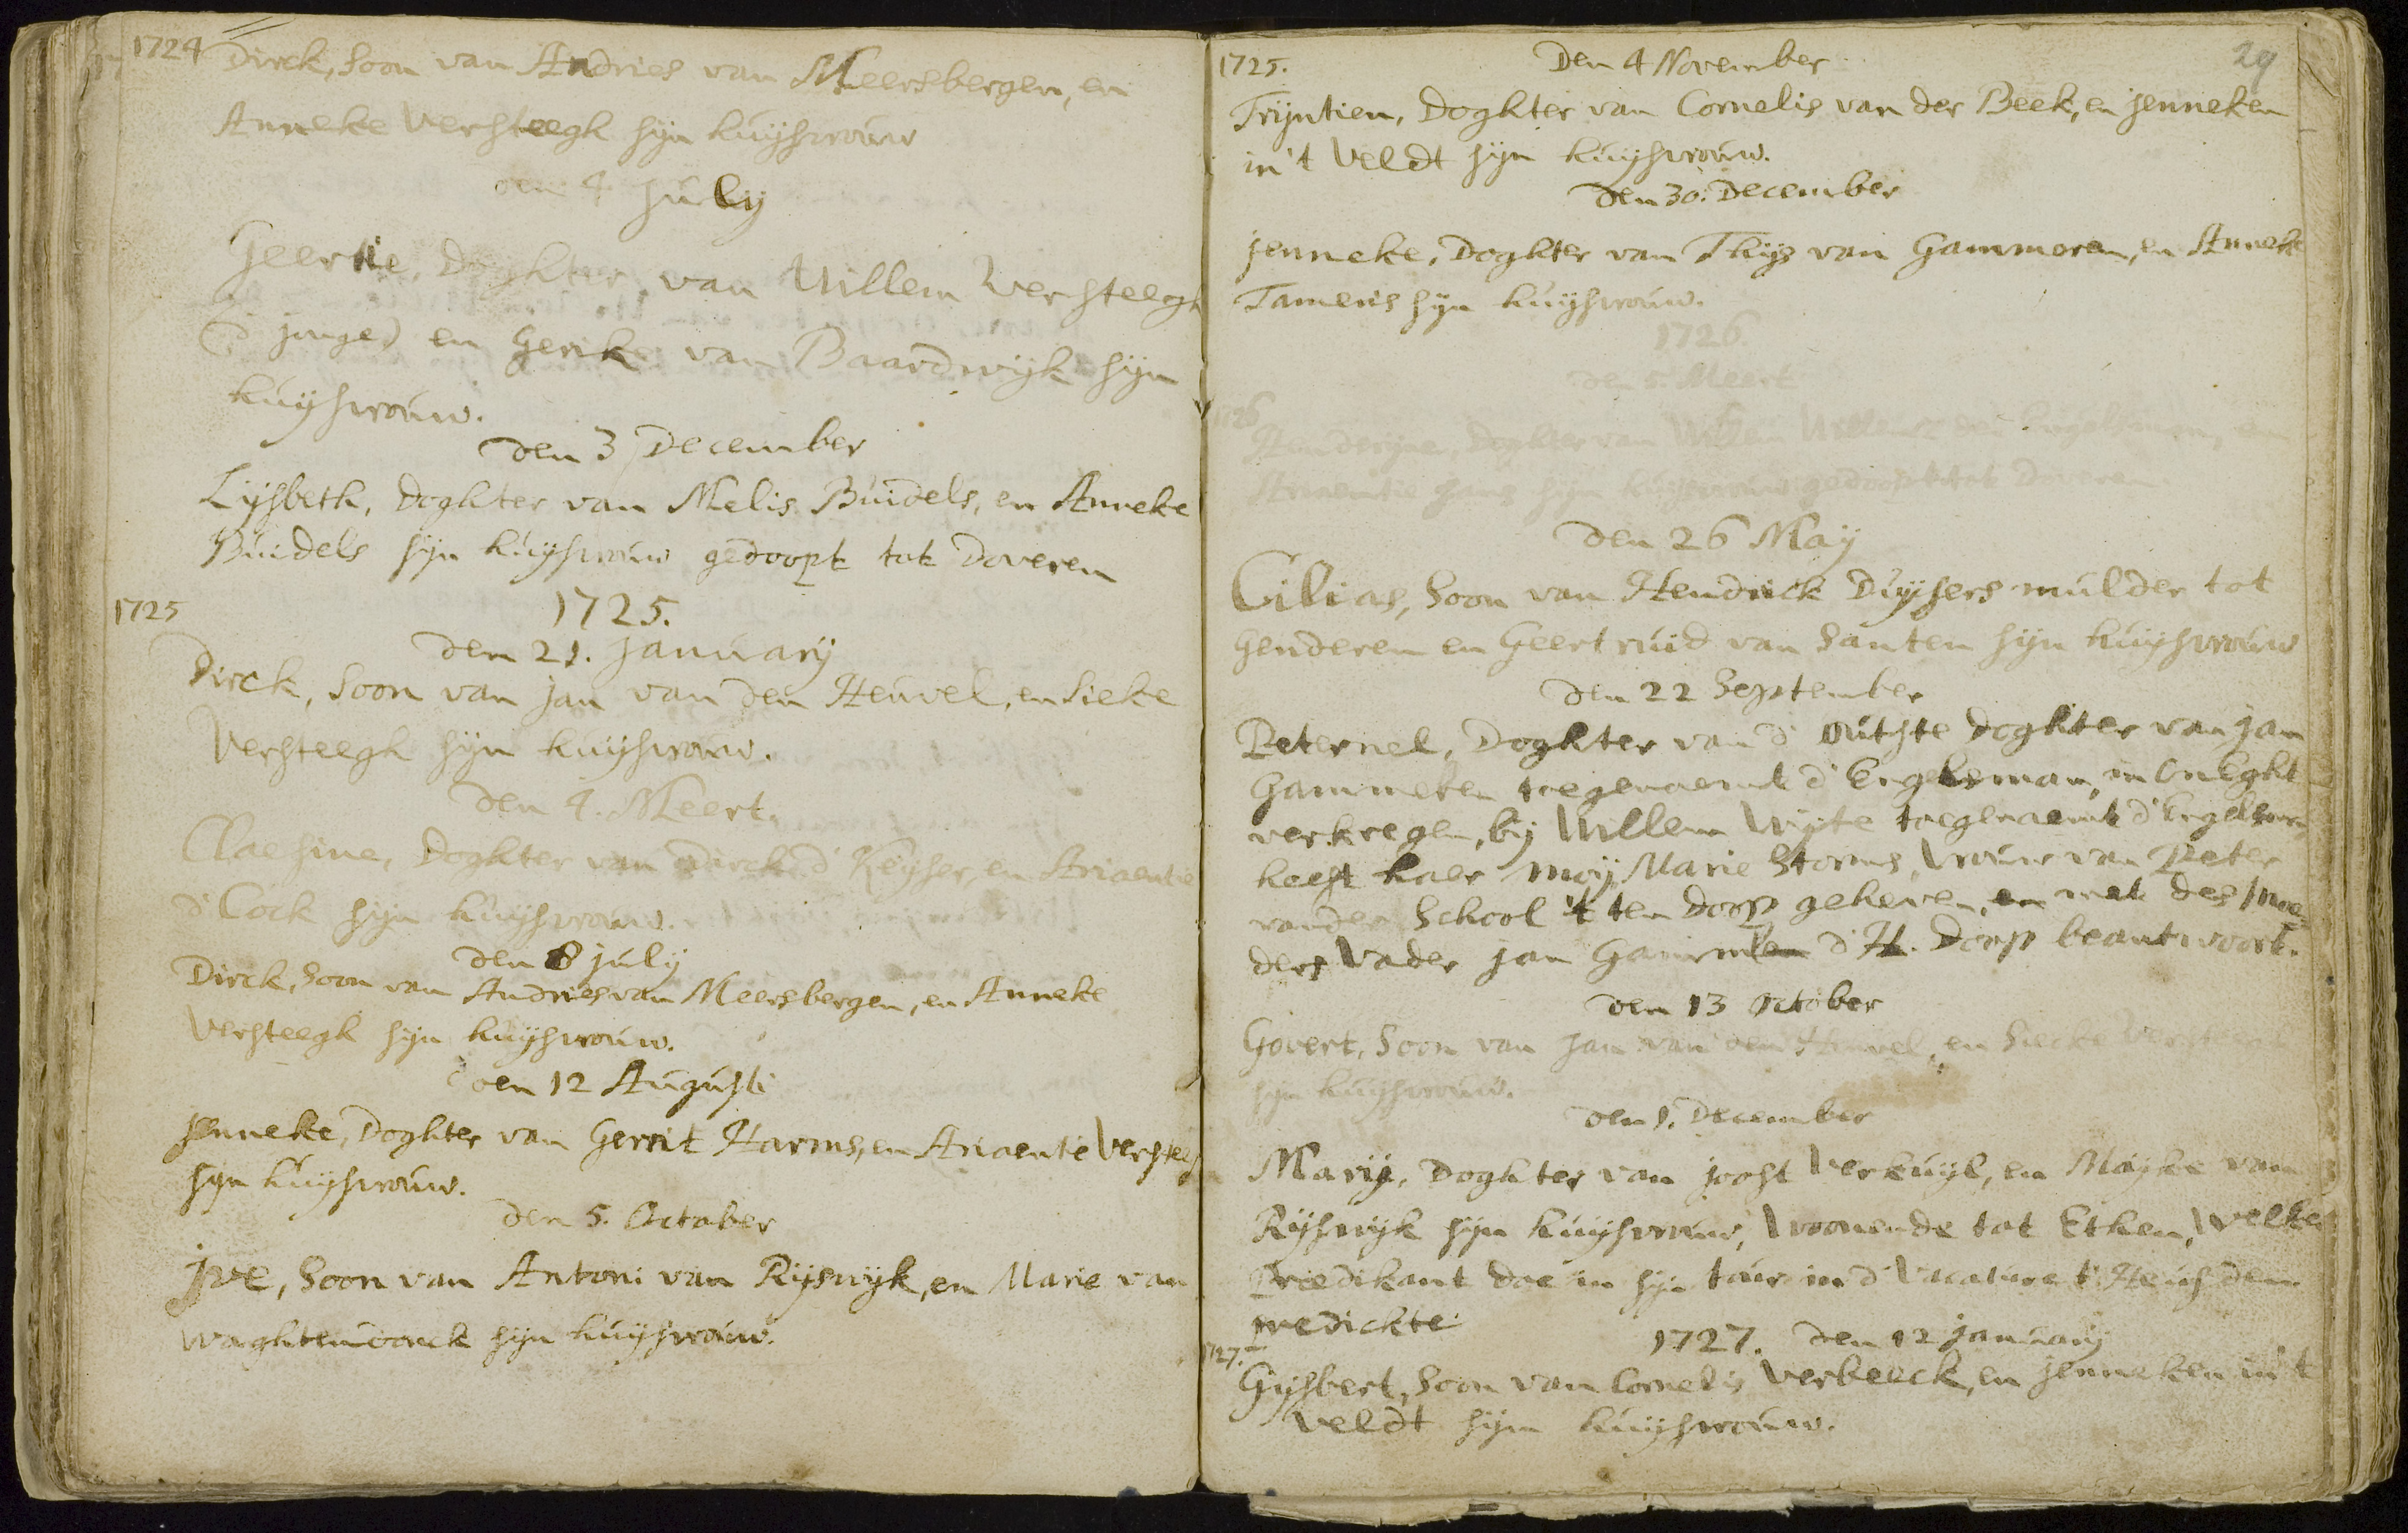 1724 Dirck, Soon van Andries van Meersbergen, en
Anneke Versteegh sijn huijsvrouw
den 4 July
Geertie, Doghter van Willem Versteegh
(d' jonge) en Gerike van Baardwijk sijn
huijsvrouw.
Den 3 December
Lijsbeth, Doghter van Melis Buidels, en Anneke
Buidels sijn huijsvrouw gedoopt tot Doveren
1725 1725.
Den 21. January
Dirck, Soon van Jan van den Heuvel, en Sieke
Versteegh sijn huijsvrouw.
Den 4. Meert.
Claesine, Doghter van Darck d' Keyser, en Ariaentie
d' Cock sijn huijsvrouw.
Den 8 July
Dirck, Soon van Andries van Meersbergen, en Anneke
Versteegh sijn huijsvrouw.
den 12 Augusti
Jenneke, Doghter van Gerrit Harms, en Ariaentie Versteeg
sijn huijsvrouw.
Den 5. October
Jve, Soon van Antoni van Rijswijk, en Marie van
Waghtendonck sijn huijsvrouw.
29
1725. Den 4 November
Trijntien, Doghter van Cornelis van der Beek, en Jenneken
in 't Veldt sijn huijsvrouw.
Den 30. December
Jenneke, Doghter van Thijs van Gammeren, en Anneke
Tameris sijn huijsvrouw.
1726
den 5. Meert
1726
Hendersijne, Doghter van Willem Willemse den Engelsman, en
Ariaentie sijn huijsvrouw gedoopt tot Doveren
Den 26 May
Cilias, Soon van Hendrick Duijsers mulder tot
Genderen en Geertruid van Santen sijn huijsvrouw
Den 22 September
Peternel, Doghter van d' outste doghter van Jan
Gammeken toegenaemt d' Engelsman, in onEght
verkregen, bij Willem Wijte toegenaemt d' Engelsman
heeft haer moij Marie Storms, Vrouw van Peter
van der School 't ten Doop geheven, en met des moe¬
ders Vader Jan Gammeken d' H. Doop beantwoort.
den 13 October
Govert, Soon van Jan van den Heuvel, en Siecke Versteegh
sijn huijsvrouw.
den 1. December
Marij, Doghter van Joost Verhuijl, en Maijke van
Rijswijk sijn huijsvrouw, Woonende tot Ethen, Welker
Predikant doe in sijn tour in d' Vacature t' Heusden
predickte
1727. 1727. Den 12 January
Gijsbert, Soon van Cornelis Verbeeck, en Jenneken in 't
Veldt sijn huijsvrouw.